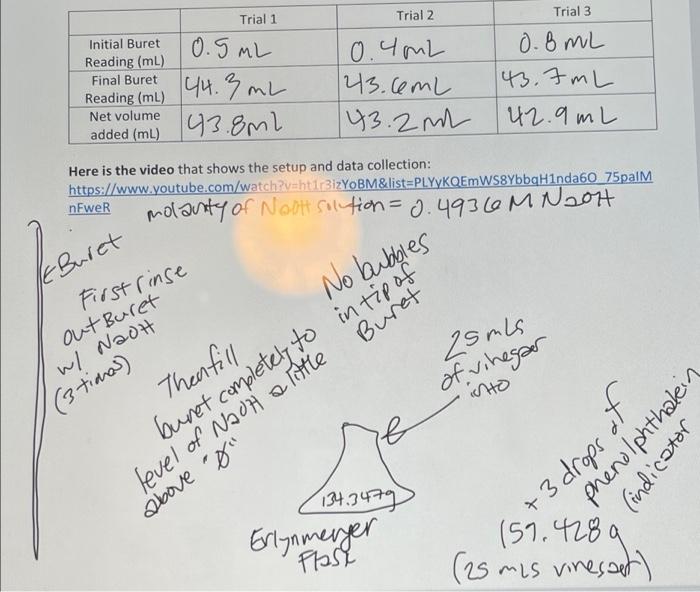 Trial 1 Trial 2 Trial 3
Initial Buret Reading (mL) 0.5 mL 0.4 mL 0.8 mL
Final Buret Reading (mL) 44.3 mL 43.6 mL 43.7 mL
Net volume added (mL) 43.8 ml 43.2 mL 42.9 mL
Here is the video that shows the setup and data collection:
https://www.youtube.com/watch?v=ht1r3izYoBM&list=PLYyKQEmWS8YbbqH1nda6O_75paIM
nFweR
molarity of NaOH solution = 0.4936 M NaOH
← Buret
First rinse
out Buret
w/ NaOH
(3 times)
Then fill
buret completely to
level of NaOH a little
above "0"
No bubbles
in tip of
Buret
25 mLs
of vinegar
into
134.3479g
Erlynmeyer
Flask
+ 3 drops of
phenolphthalein
(indicator
157.428 g
(25 mLs vinegar)